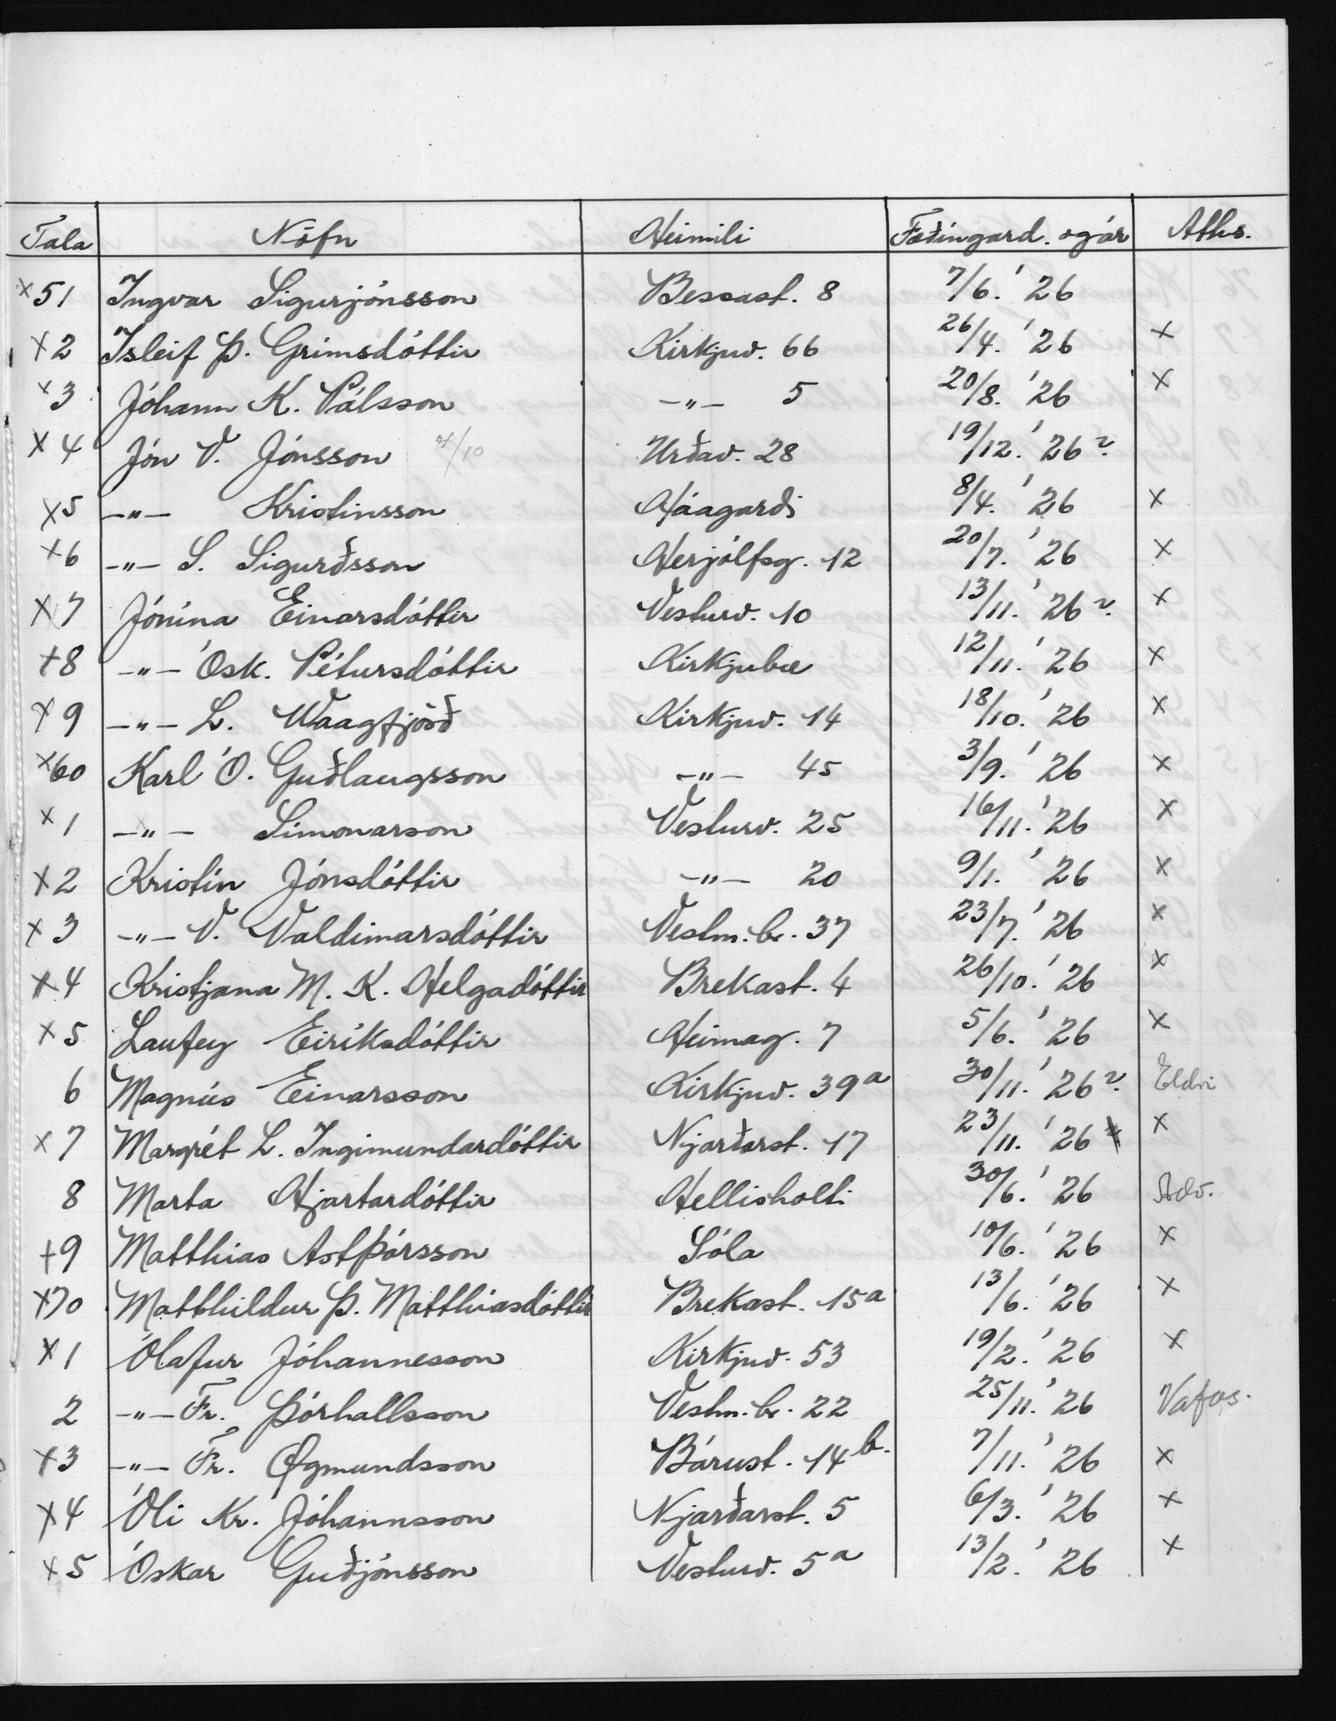 Tala Nöfn Heimili Fæðingard. og ár Aths.
×51 Ingvar Sigurjónsson Bessast. 8 7/6. '26
×2 Ísleif Þ. Grímsdóttir Kirkjuv. 66 26/4. '26 ×
×3 Jóhann K. Pálsson -"- 5 20/8. '26 ×
×4 Jón V. Jónsson 4/10 Urðav. 28 19/12. '26 ?
×5 -"- Kristinsson Háagarði 8/4. '26 ×
×6 -"- S. Sigurðsson Herjólfsg. 12 20/7. '26 ×
×7 Jónína Einarsdóttir Vesturv. 10 13/11. '26 ? ×
×8 -"- Ósk. Pétursdóttir Kirkjubæ 12/11. '26 ×
×9 -"- L. Waagfjörð Kirkjuv. 14 18/10. '26 ×
×60 Karl Ó. Guðlaugsson -"- 45 3/9. '26 ×
×1 -"- Símonarson Vesturv. 25 16/11. '26 ×
×2 Kristín Jónsdóttir -"- 20 9/1. '26 ×
×3 -"- V. Valdimarsdóttir Vestm.br. 37 23/7. '26 ×
×4 Kristjana M. K. Helgadóttir Brekast. 4 26/10. '26 ×
×5 Laufey Eiríksdóttir Heimag. 7 5/6. '26 ×
6 Magnús Einarsson Kirkjuv. 39a 30/11. '26 ? Eldri
×7 Margrét L. Ingimundardóttir Njarðarst. 17 23/11. '26 ×
8 Marta Hjartardóttir Hellisholti 30/6. '26
+9 Matthías Ástþórsson Sóla 10/6. '26 ×
×70 Matthildur Þ. Matthíasdóttir Brekast. 15a 13/6. '26 ×
×1 Ólafur Jóhannesson Kirkjuv. 53 19/2. '26 ×
2 -"- Fr. Þórhallsson Vestm.br. 22 25/11. '26
×3 -"- Fr. Øgmundsson Bárust. 14b. 7/11. '26 ×
×4 Óli Kr. Jóhannsson Njarðarst. 5 6/3. '26 ×
×5 Óskar Guðjónsson Vesturv. 5a 13/2. '26 ×